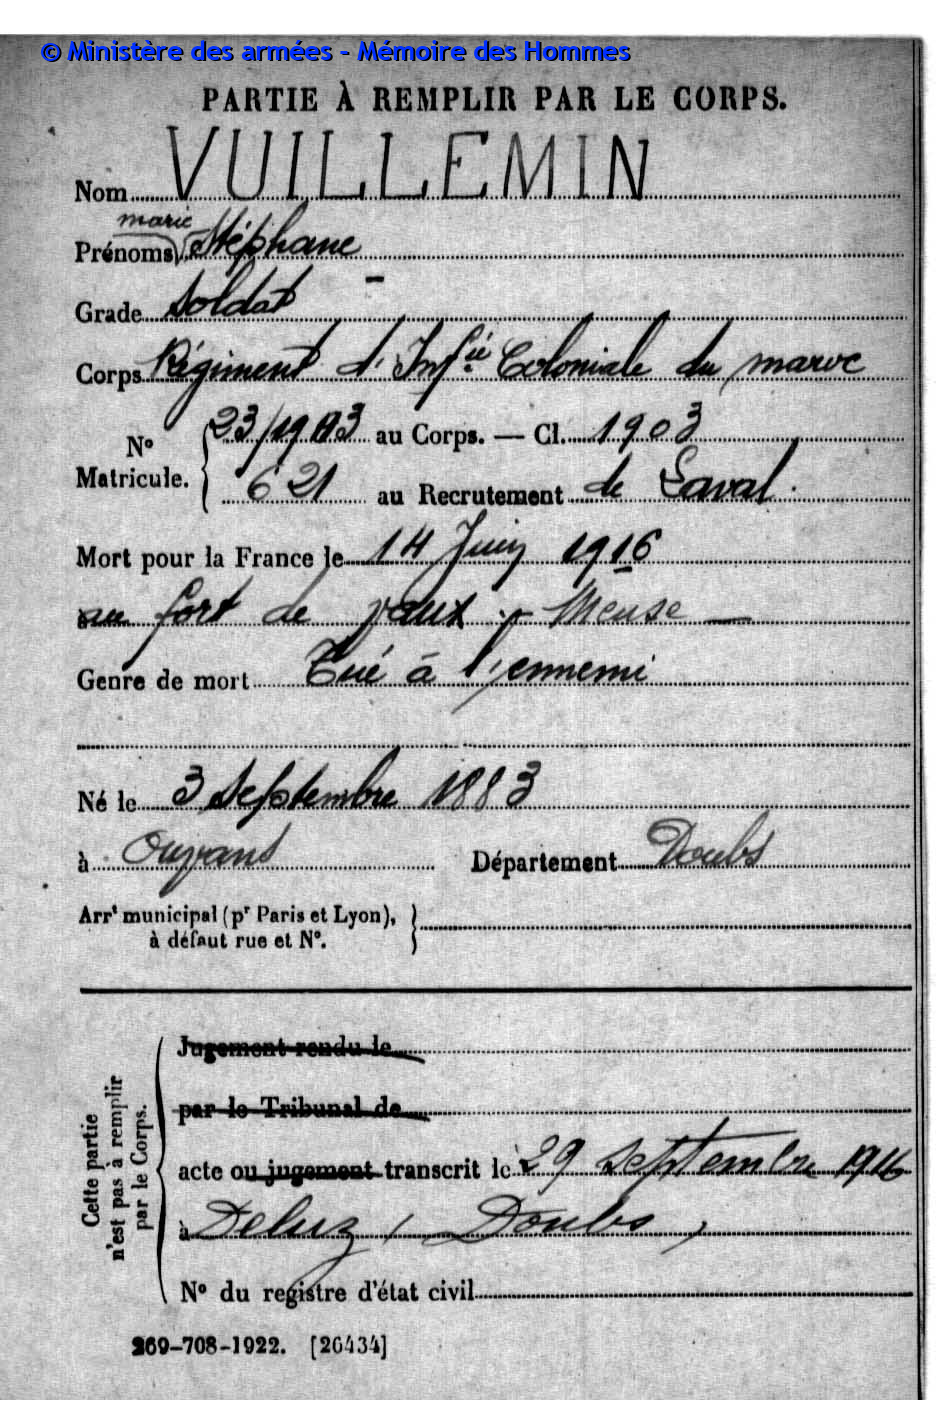 © Ministère des armées - Mémoire des Hommes
PARTIE À REMPLIR PAR LE CORPS.
Nom VUILLEMIN
marie
Prénoms Stéphane
Grade Soldat
Corps Régiment d'Inf.ie Coloniale du maroc
N° Matricule. 23/1903 au Corps. — Cl. 1903
621 au Recrutement de Laval.
Mort pour la France le 14 Juin 1916
au fort de Vaux - Meuse —
Genre de mort Tué à l'ennemi
Né le 3 Septembre 1883
à Ouvans Département Doubs
Arrt municipal (pr Paris et Lyon),
à défaut rue et N°.
Cette partie
n'est pas à remplir
par le Corps.
Jugement rendu le
par le Tribunal de
acte ou jugement transcrit le 29 Septembre 1916
à Deluz (Doubs)
N° du registre d'état civil
269-708-1922. [26434]